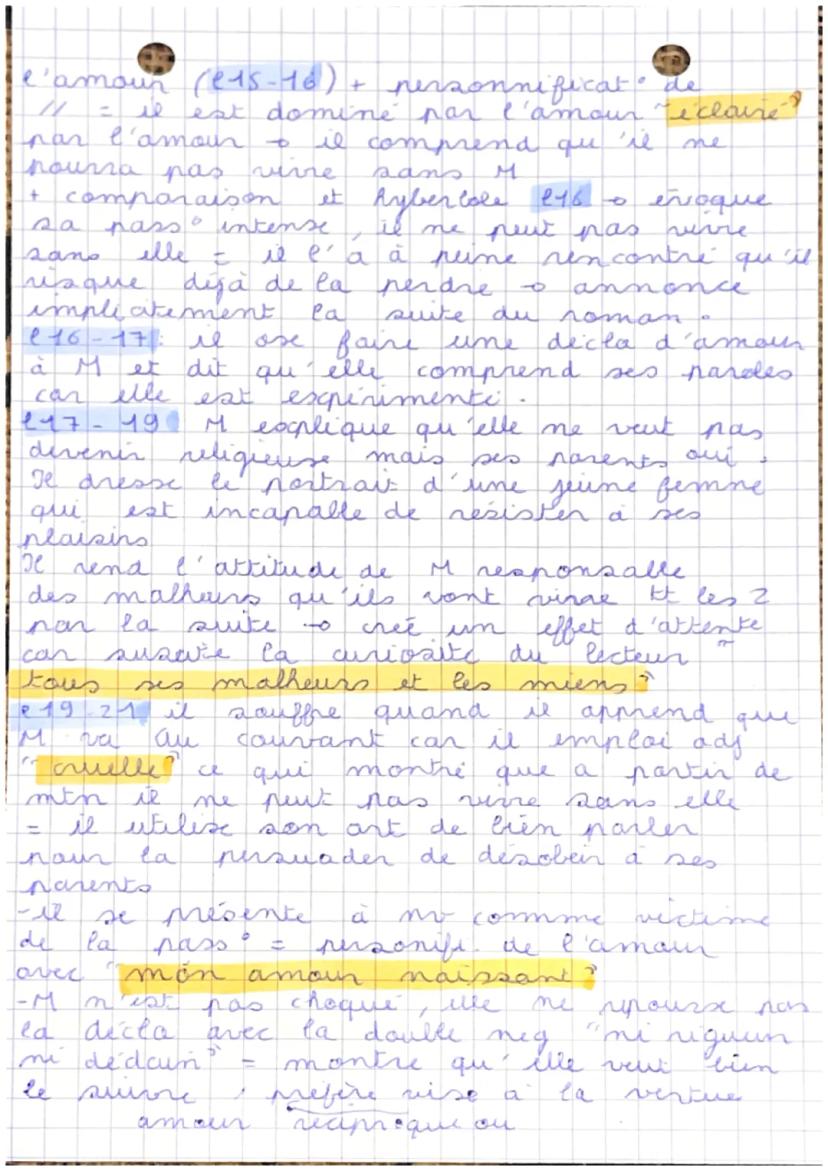 l'amour (l15-16) + personnificat° de
// = il est dominé par l'amour "éclairé"
par l'amour → il comprend qu'il ne
pourra pas vivre sans M
+ comparaison et hyberbole l16 → évoque
sa pass° intense, il ne peut pas vivre
sans elle = il l'a à peine rencontré qu'il
risque déjà de la perdre → annonce
implicatement la suite du roman.
l16-17: il ose faire une décla d'amour
à M et dit qu'elle comprend ses paroles
car elle est expérimenté.
l17-19 M explique qu'elle ne veut pas
devenir religieuse mais ses parents oui.
Il dresse le portrait d'une jeune femme
qui est incapable de résister à ses
plaisirs
Il rend l'attitude de M responsable
des malheurs qu'ils vont vivre tt les 2
par la suite → créé un effet d'attente
car suscite la curiosité du lecteur "
tous ses malheurs et les miens"
l19-21 il souffre quand il apprend que
M va au couvant car il emploi adj
"cruelle" ce qui montre que a partir de
mtn il ne peut pas vivre sans elle
= il utilise son art de bien parler
pour la persuader de désobeir à ses
parents
-il se présente à nv comme victime
de la pass° = personifi. de l'amour
avec "mon amour naissant"
-M n'est pas choqué, elle ne repousse pas
la décla avec la double neg "ni rigueur
ni dédain" = montre qu'elle veut bien
le suivre, préfère vise à la vertue
amour réciproque ou